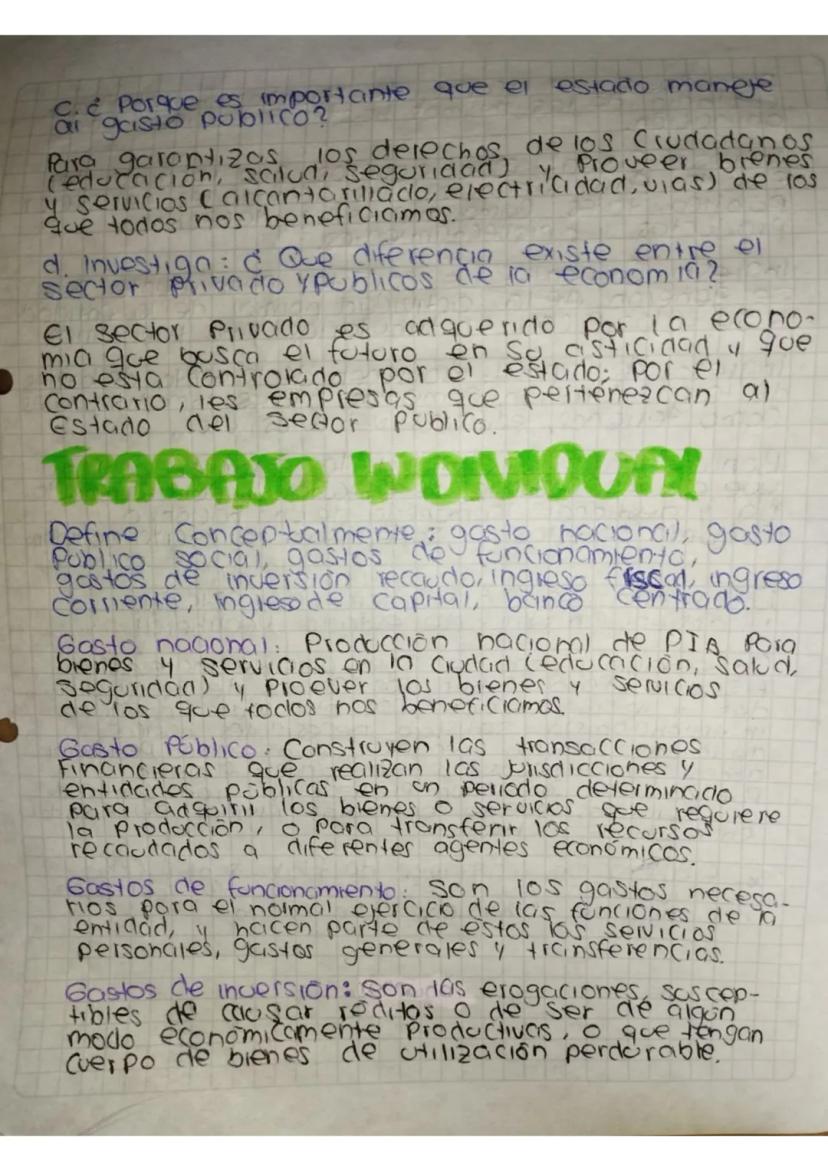 c. ¿ Porque es importante que el estado maneje
al gasto público?
Para garantizas los derechos de los Ciudadanos
(educación, salud, seguridad) y Proveer bienes
y servicios (alcantarillado, electricidad, vias) de los
que todos nos beneficiamos.
d. Investiga: ¿ Que diferencia existe entre el
sector privado y publicos de la economia?
El sector Privado es adquerido por la econo-
mia que busca el futuro en su asticidad y que
no esta controlado por el estado; por el
contrario, les empresas que pertenezcan al
Estado del sector público.
TRABAJO INDIVIDUAL
Define Conceptalmente: gasto nacional, gasto
Público social, gastos de funcionamiento,
gastos de inversión recaudo, ingreso fiscal, ingreso
corriente, ingreso de capital, banco centrado.
Gasto nacional: Producción nacional de PIB Para
bienes y servicios en la ciudad (educación, salud,
seguridad) y Proever los bienes y servicios
de los que todos nos beneficiamos.
Gasto Público: Construyen las transacciones
Financieras que realizan las jurisdicciones y
entidades públicas en un periodo determinado
para adquirir los bienes o servicios que requiere
la Producción, o para transferir los recursos
recaudados a diferentes agentes económicos.
Gastos de funcionamiento: Son los gastos necesa-
rios para el normal ejercicio de las funciones de la
entidad, y hacen parte de estos los servicios
personales, gastos generales y transferencias.
Gastos de inversión: Son las erogaciones, suscep-
tibles de causar réditos o de ser de algún
modo económicamente Productivas, o que tengan
cuerpo de bienes de utilización perdurable.